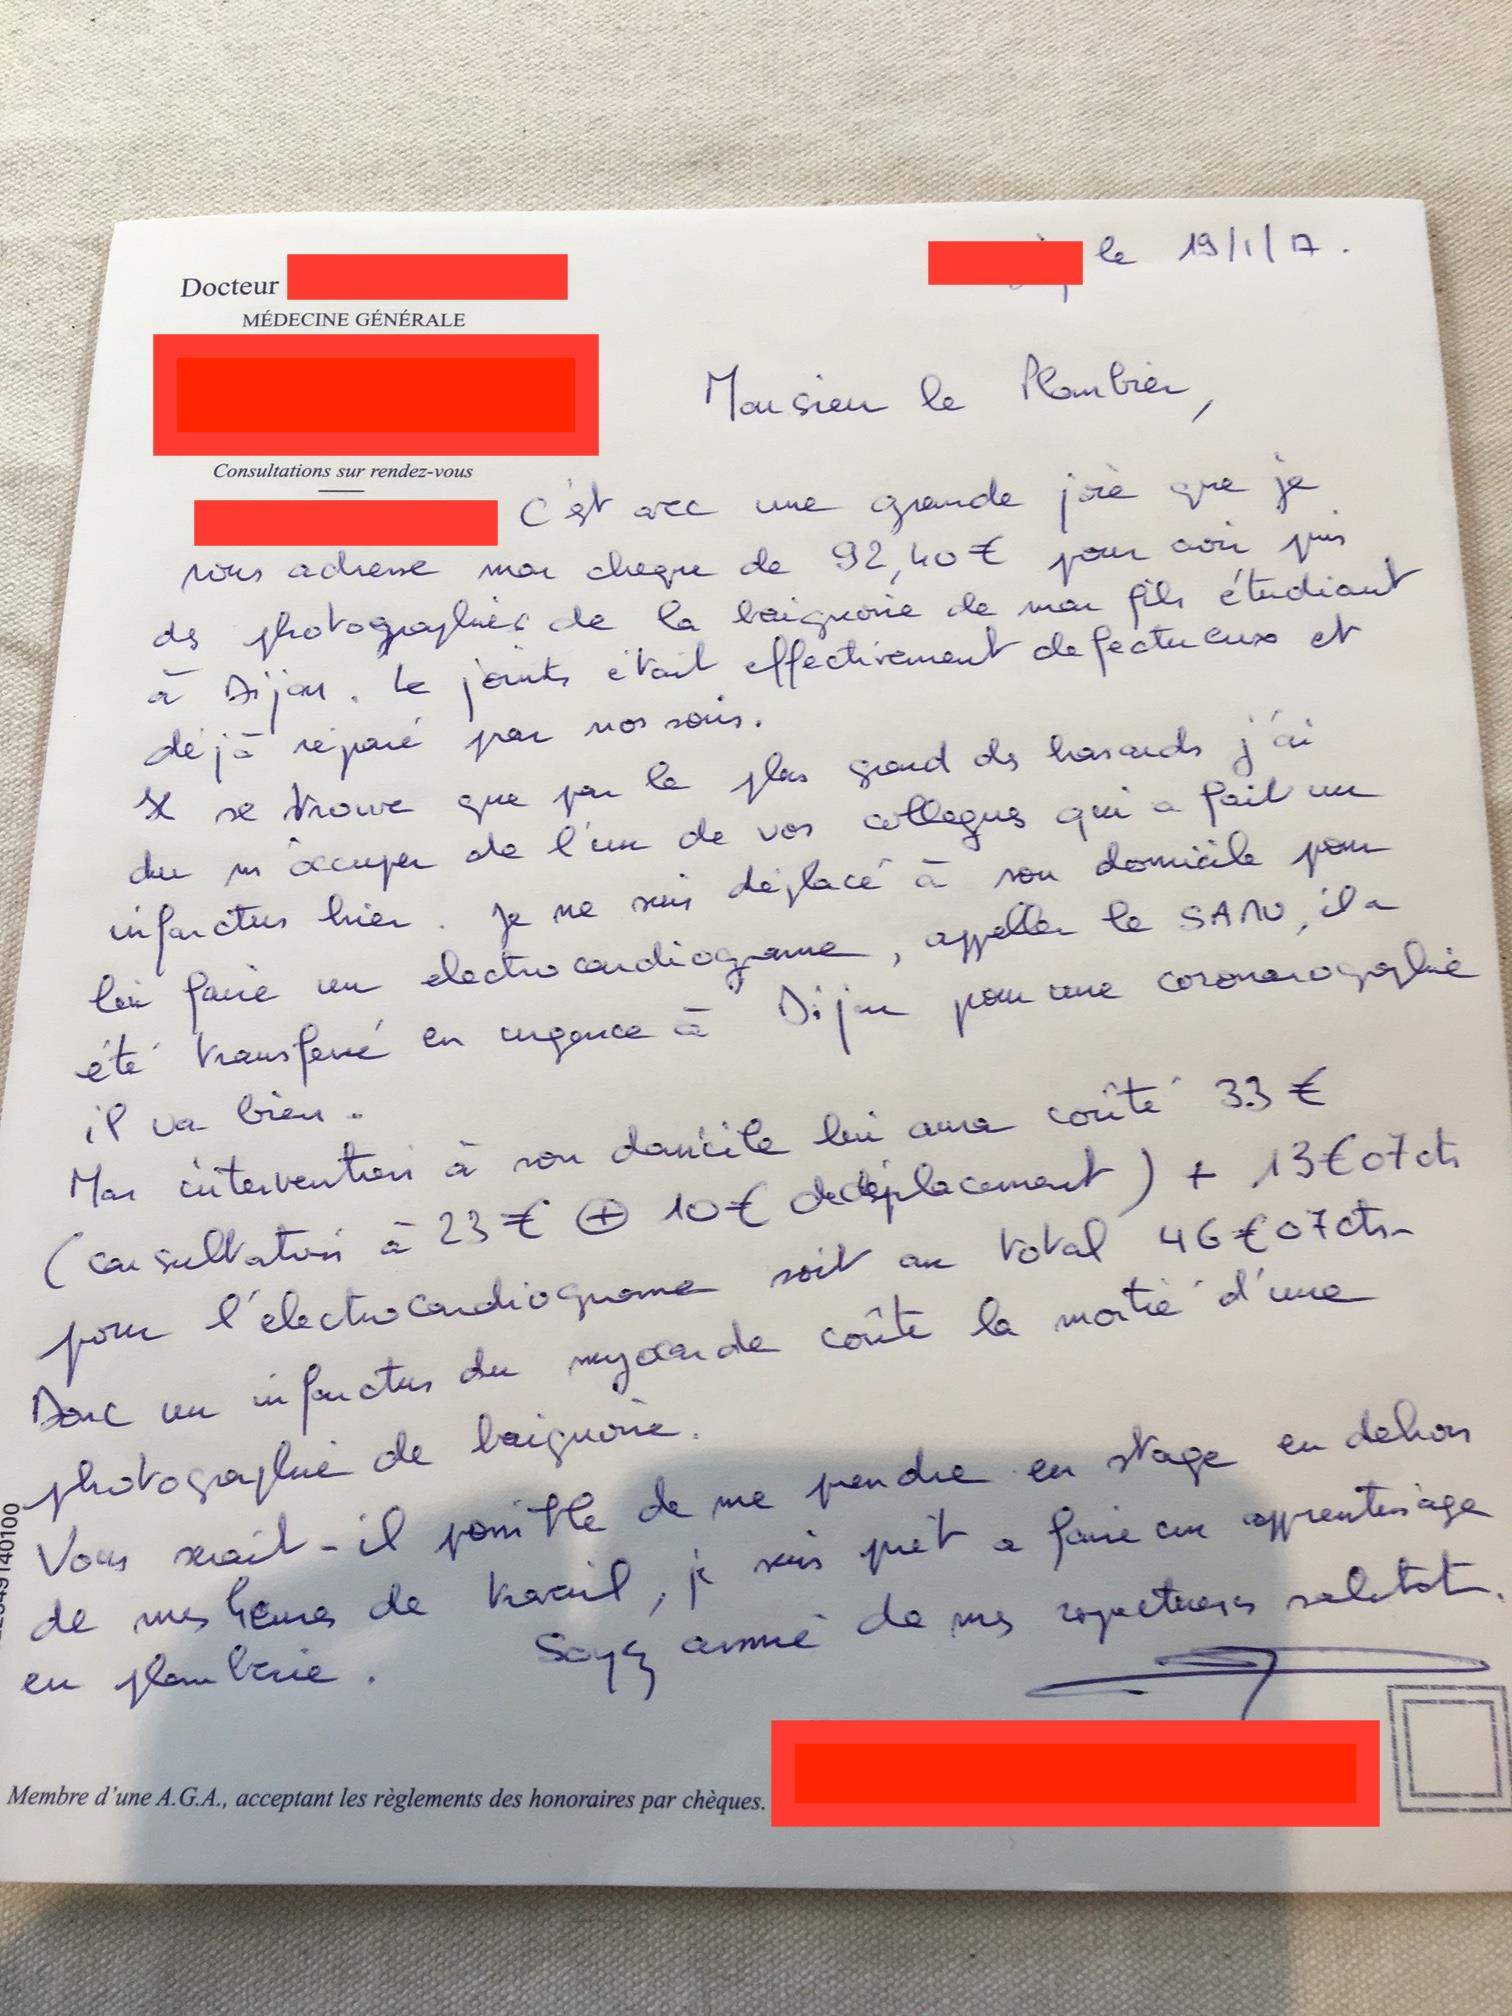 Docteur
MÉDECINE GÉNÉRALE
le 19/1/17.
Monsieur le Plombier,
Consultations sur rendez-vous
C'est avec une grande joie que je
vous adresse mon cheque de 92,40€ pour avoir pris
des photographies de la baignoire de mon fils étudiant
à Dijon. Le joints était effectivement defectueux et
déjà réparé par nos soins.
Il se trouve que par le plus grand des hasards j'ai
du m'occuper de l'un de vos collegues qui a fait un
infarctus hier. Je me suis déplacé à son domicile pour
lui faire un electrocardiograme, appeller le SAMU, il a
été transferé en urgence à Dijon pour une coronarographie
il va bien.
Mon intervention à son domicile lui aura coûté 33€
(consultation à 23€ + 10€ de déplacement) + 13€07cts
pour l'electrocardiograme soit au total 46€07cts-
Donc un infarctus du myocarde coûte la moitié d'une
photographie de baignoire.
Vous serait-il possible de me prendre en stage en dehors
de mes heures de travail, je suis prêt a faire un apprentissage
en plomberie. Soyez assuré de mes respectueuses salutat.
Membre d'une A.G.A., acceptant les règlements des honoraires par chèques.